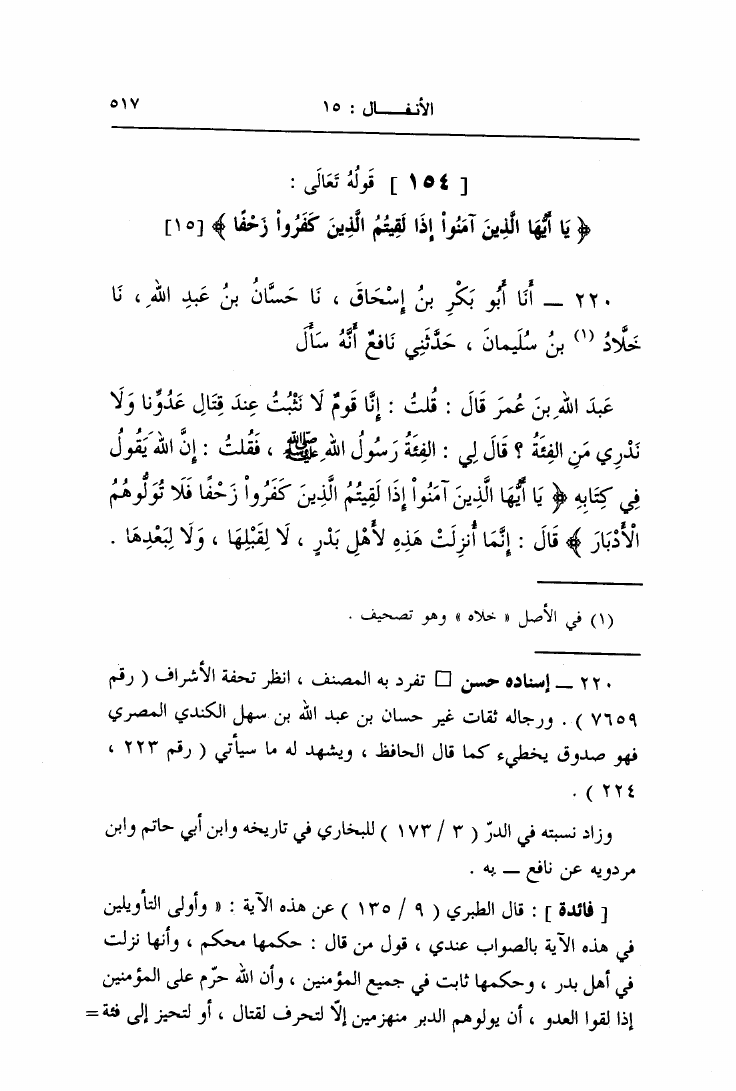 الأنفـــال : ١٥
٥١٧
[ ١٥٤ ] قَولُهُ تَعَالَى :
﴿ يَا أَيُّهَا الَّذِينَ آمَنُواْ إِذَا لَقِيتُمُ الَّذِينَ كَفَرُواْ زَحْفًا ﴾ [١٥]
٢٢٠ ــ أَنَا أَبُو بَكْرِ بنُ إِسْحَاقَ ، نَا حَسَّانُ بنُ عَبدِ اللهِ ، نَا
خَلَّادُ (١) بنُ سُلَيمانَ ، حَدَّثَنِي نَافِعٌ أَنَّهُ سَأَلَ
عَبدَ اللهِ بنَ عُمرَ قَالَ : قُلتُ : إِنَّا قَومٌ لَا نَثْبُتُ عِندَ قِتَالِ عَدُوِّنا وَلَا
نَدْرِي مَنِ الفِئَةُ ؟ قَالَ لِي : الفِئَةُ رَسُولُ اللهِ ﷺ ، فَقُلتُ : إِنَّ اللهَ يَقُولُ
فِي كِتَابِهِ ﴿ يَا أَيُّهَا الَّذِينَ آمَنُواْ إِذَا لَقِيتُمُ الَّذِينَ كَفَرُواْ زَحْفًا فَلَا تُوَلُّوهُمُ
الْأَدْبَارَ ﴾ قَالَ : إِنَّمَا أُنزِلَتْ هَذِهِ لأَهْلِ بَدْرٍ ، لَا لِقَبْلِهَا ، وَلَا لِبَعْدِهَا .
(١) في الأصل « خلاه » وهو تصحيف .
٢٢٠ ــ إسناده حسن □ تفرد به المصنف ، انظر تحفة الأشراف ( رقم
٧٦٥٩ ) . ورجاله ثقات غير حسان بن عبد الله بن سهل الكندي المصري
فهو صدوق يخطيء كما قال الحافظ ، ويشهد له ما سيأتي ( رقم ٢٢٣ ،
٢٢٤ ) .
وزاد نسبته في الدرّ ( ٣ / ١٧٣ ) للبخاري في تاريخه وابن أبي حاتم وابن
مردويه عن نافع ــ به .
[ فائدة ] : قال الطبري ( ٩ / ١٣٥ ) عن هذه الآية : « وأولى التأويلين
في هذه الآية بالصواب عندي ، قول من قال : حكمها محكم ، وأنها نزلت
في أهل بدر ، وحكمها ثابت في جميع المؤمنين ، وأن الله حرّم على المؤمنين
إذا لقوا العدو ، أن يولوهم الدبر منهزمين إلّا لتحرف لقتال ، أو لتحيز إلى فئة =